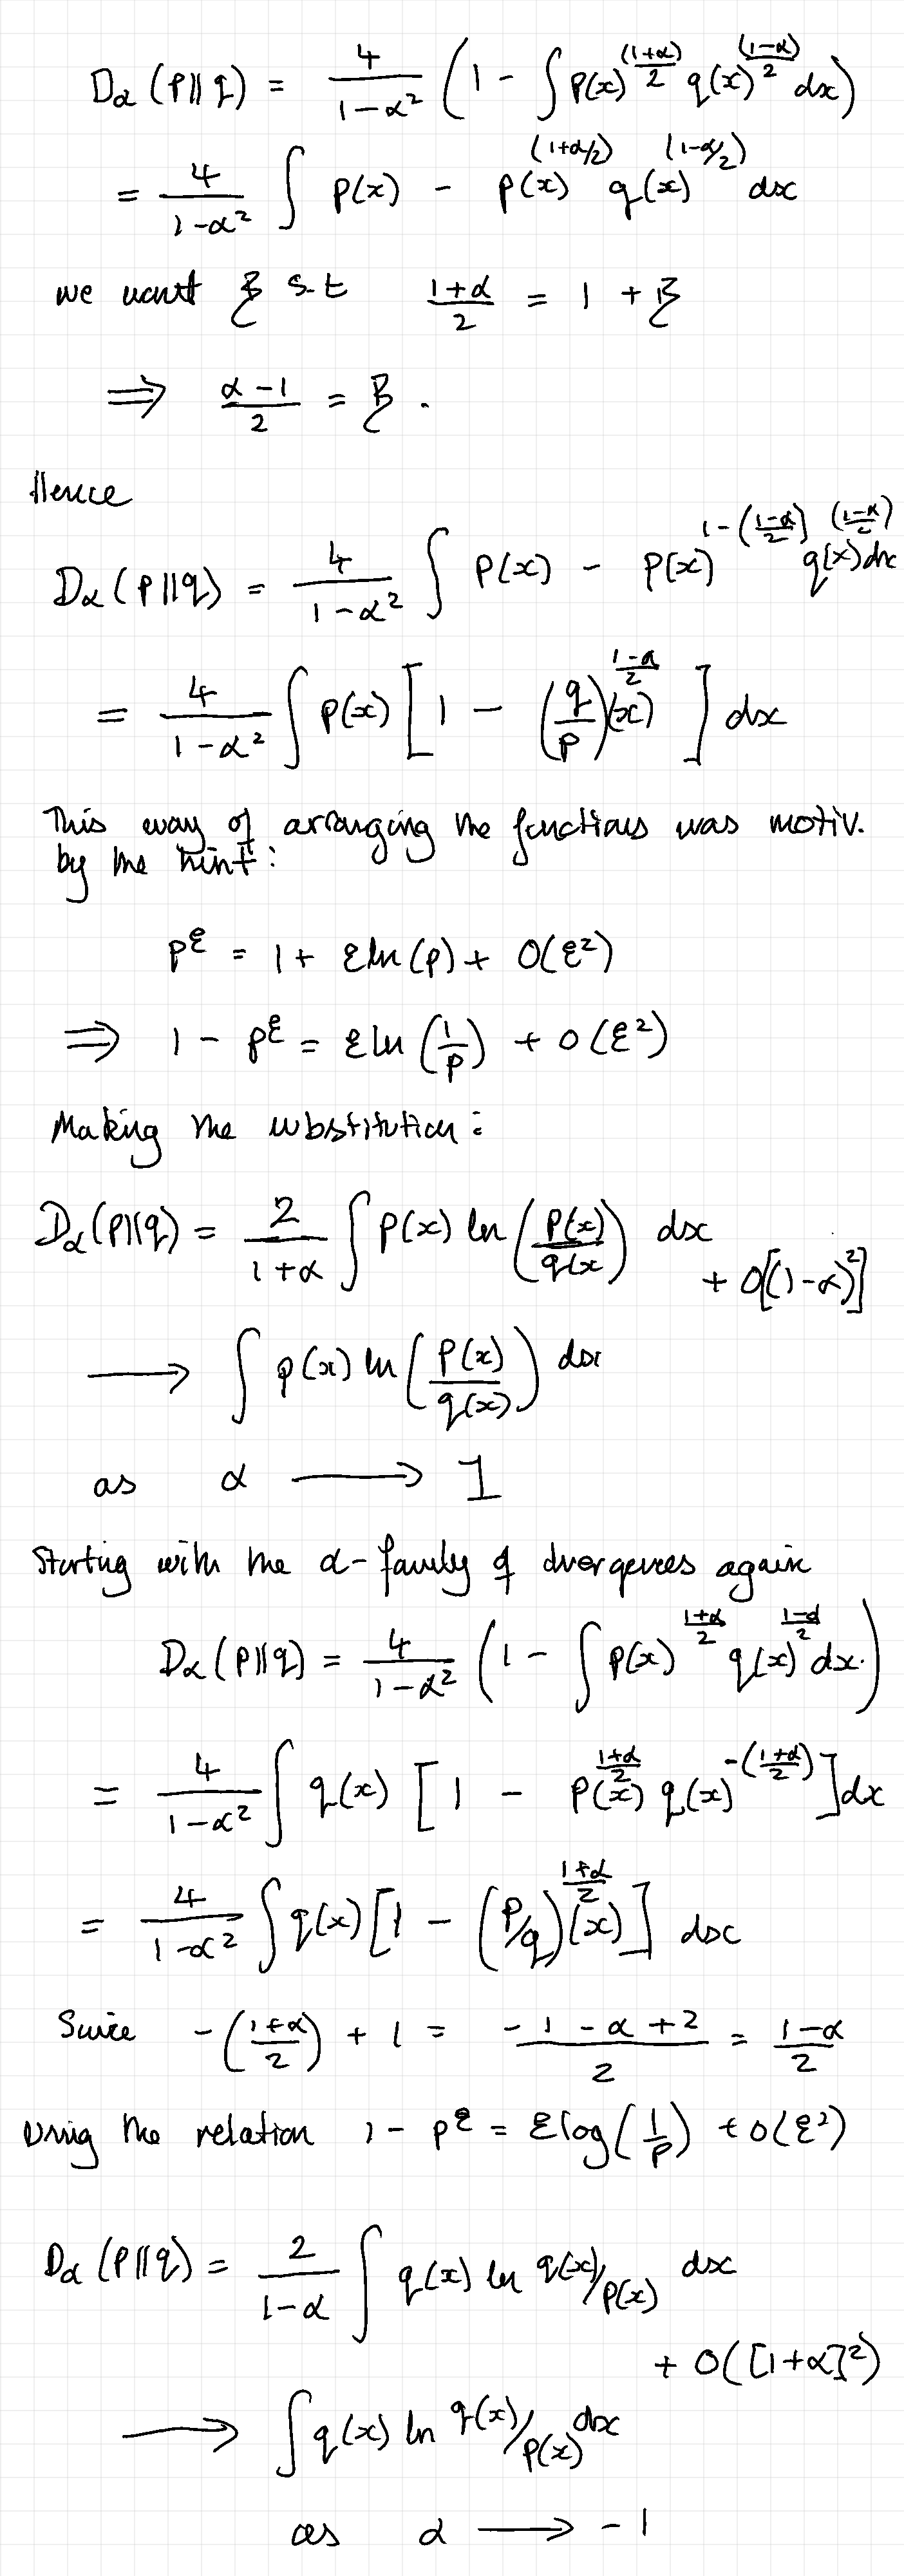 Dα(p||q) = 4/(1-α²) (1 - ∫p(x)^((1+α)/2) q(x)^((1-α)/2) dx)
= 4/(1-α²) ∫ p(x) - p(x)^(1+α/2) q(x)^(1-α/2) dx
we want ξ s.t (1+α)/2 = 1 + ξ
⟹ (α-1)/2 = ξ.
Hence
Dα(p||q) = 4/(1-α²) ∫ p(x) - p(x)^(1-((1-α)/2)) q(x)^((1-α)/2) dx
= 4/(1-α²) ∫ p(x) [1 - (q/p)(x)^((1-α)/2)] dx
This way of arranging the functions was motiv.
by the hint:
p^ε = 1 + εln(p) + O(ε²)
⟹ 1 - p^ε = εln(1/p) + O(ε²)
Making the substitution:
Dα(p||q) = 2/(1+α) ∫ p(x) ln(p(x)/q(x) dx
+ O[(1-α)²]
⟶ ∫ p(x) ln(p(x)/q(x)) dx
as α ⟶ 1
Starting with the α-family of divergences again
Dα(p||q) = 4/(1-α²) (1 - ∫ p(x)^((1+α)/2) q(x)^((1-α)/2) dx.)
= 4/(1-α²) ∫ q(x) [1 - p(x)^((1+α)/2) q(x)^(-((1+α)/2))] dx
= 4/(1-α²) ∫ q(x) [1 - (p/q)(x)^((1+α)/2)] dx
Since -((1+α)/2) + 1 = (-1-α+2)/2 = (1-α)/2
Using the relation 1 - p^ε = εlog(1/p) + O(ε²)
Dα(p||q) = 2/(1-α) ∫ q(x) ln q(x)/p(x) dx
+ O([1+α]²)
⟶ ∫ q(x) ln q(x)/p(x) dx
as α ⟶ -1